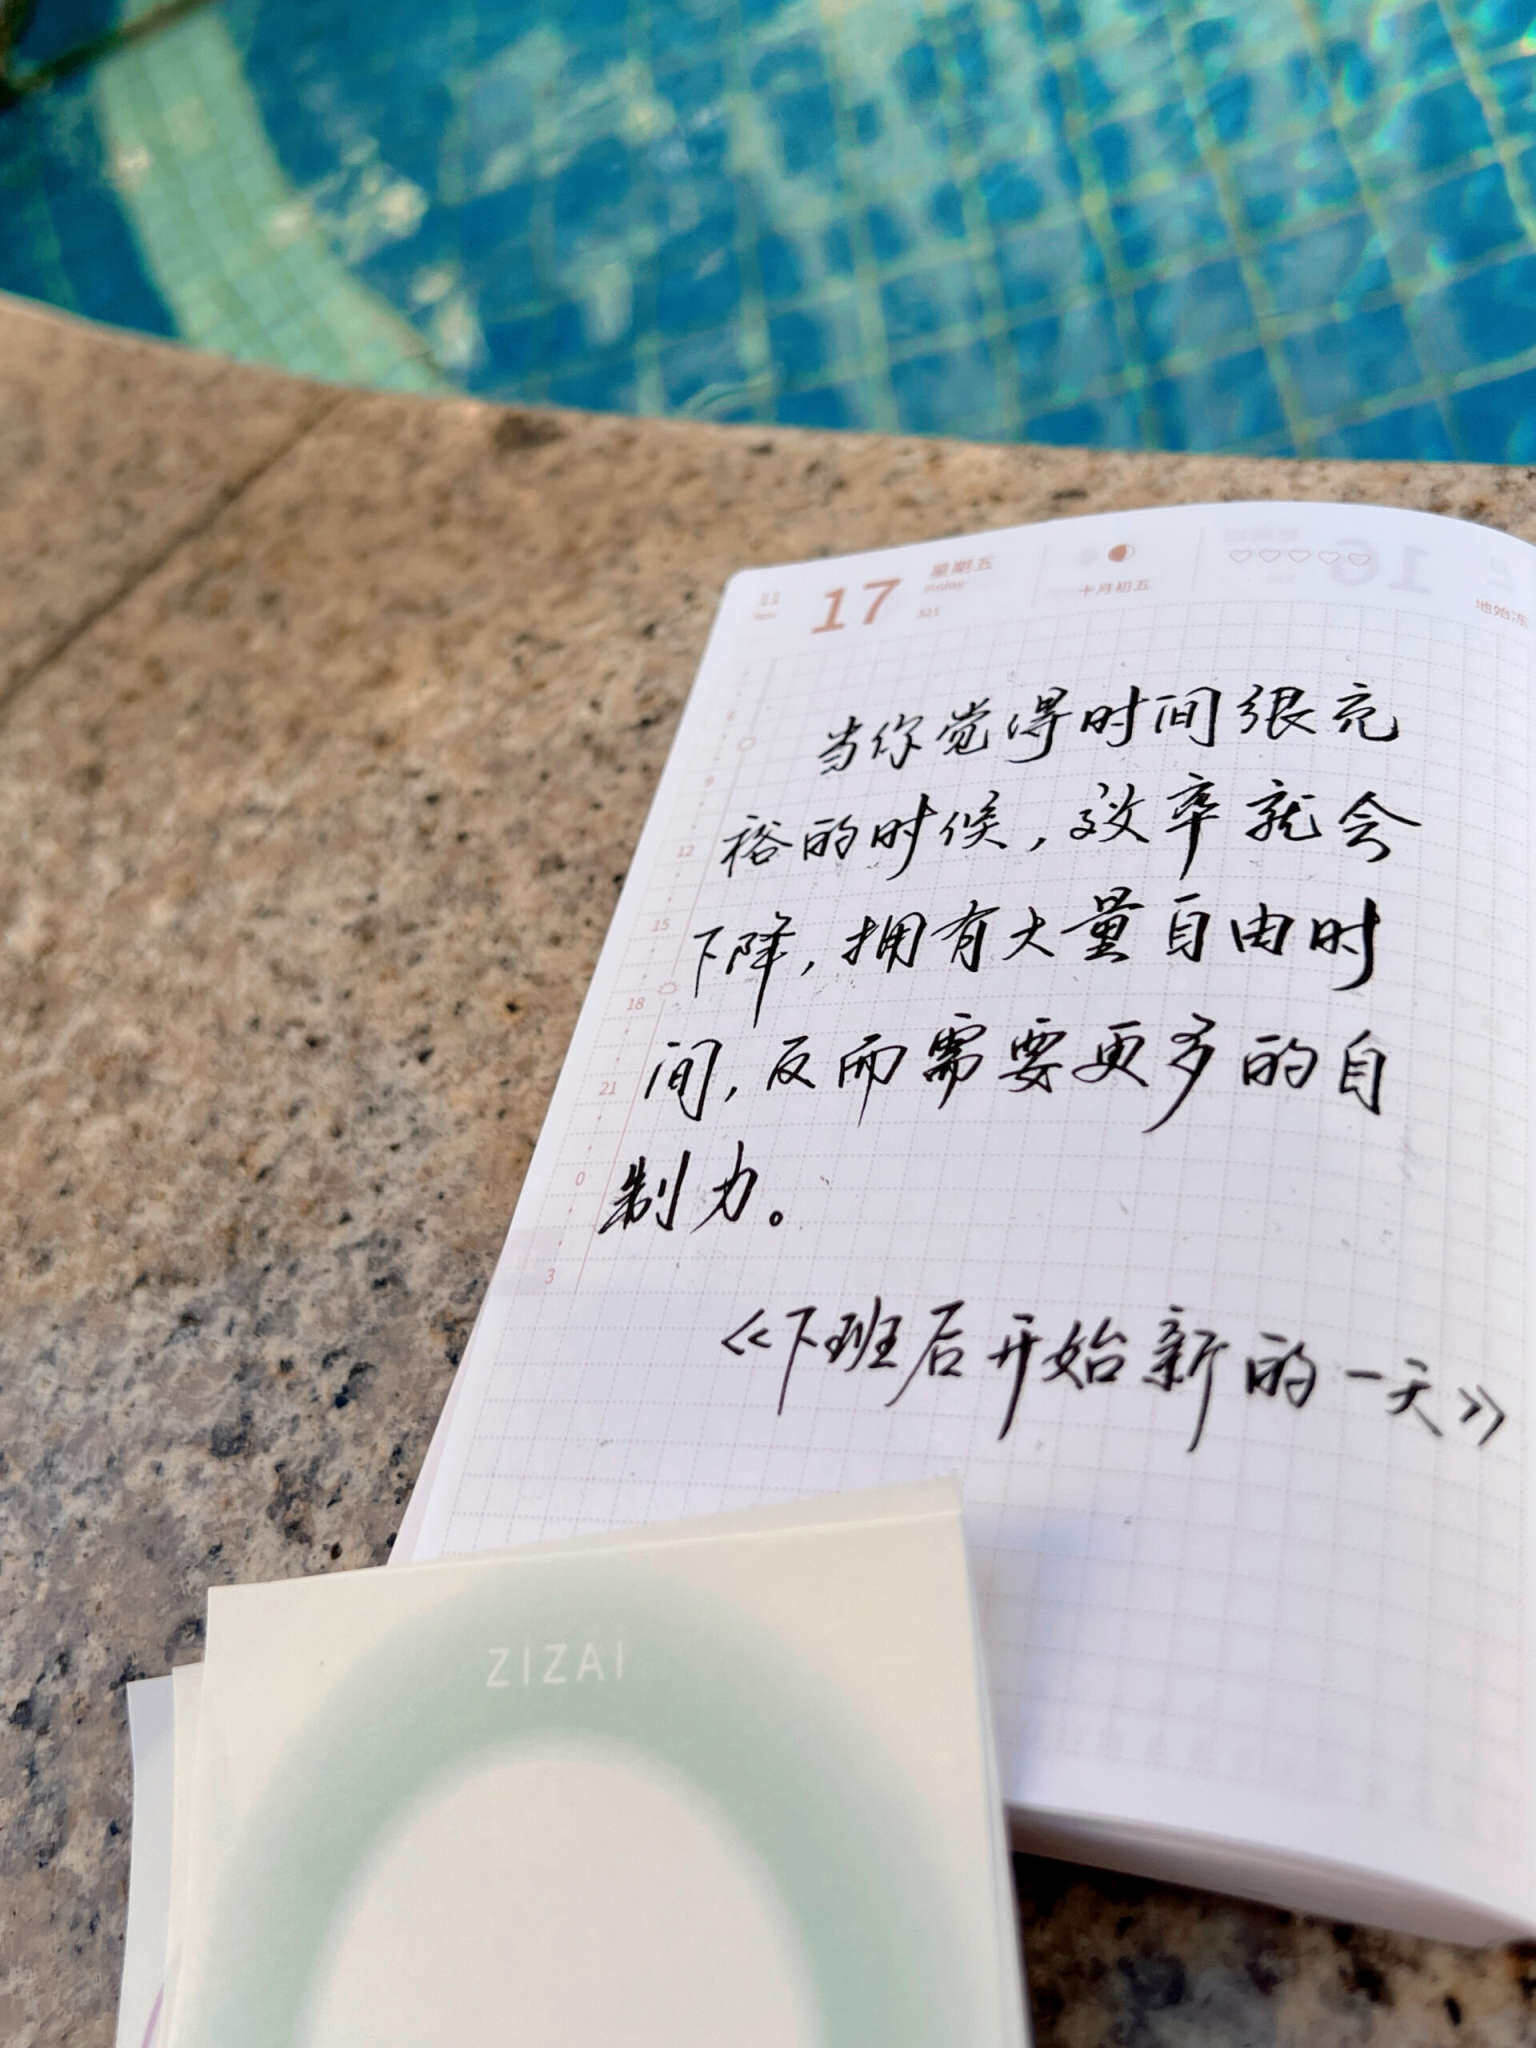 11
17
星期五
十月初五
当你觉得时间很充
裕的时候，效率就会
下降，拥有大量自由时
间，反而需要更多的自
制力。
《下班后开始新的一天》
6
9
12
15
18
21
0
3
ZIZAI